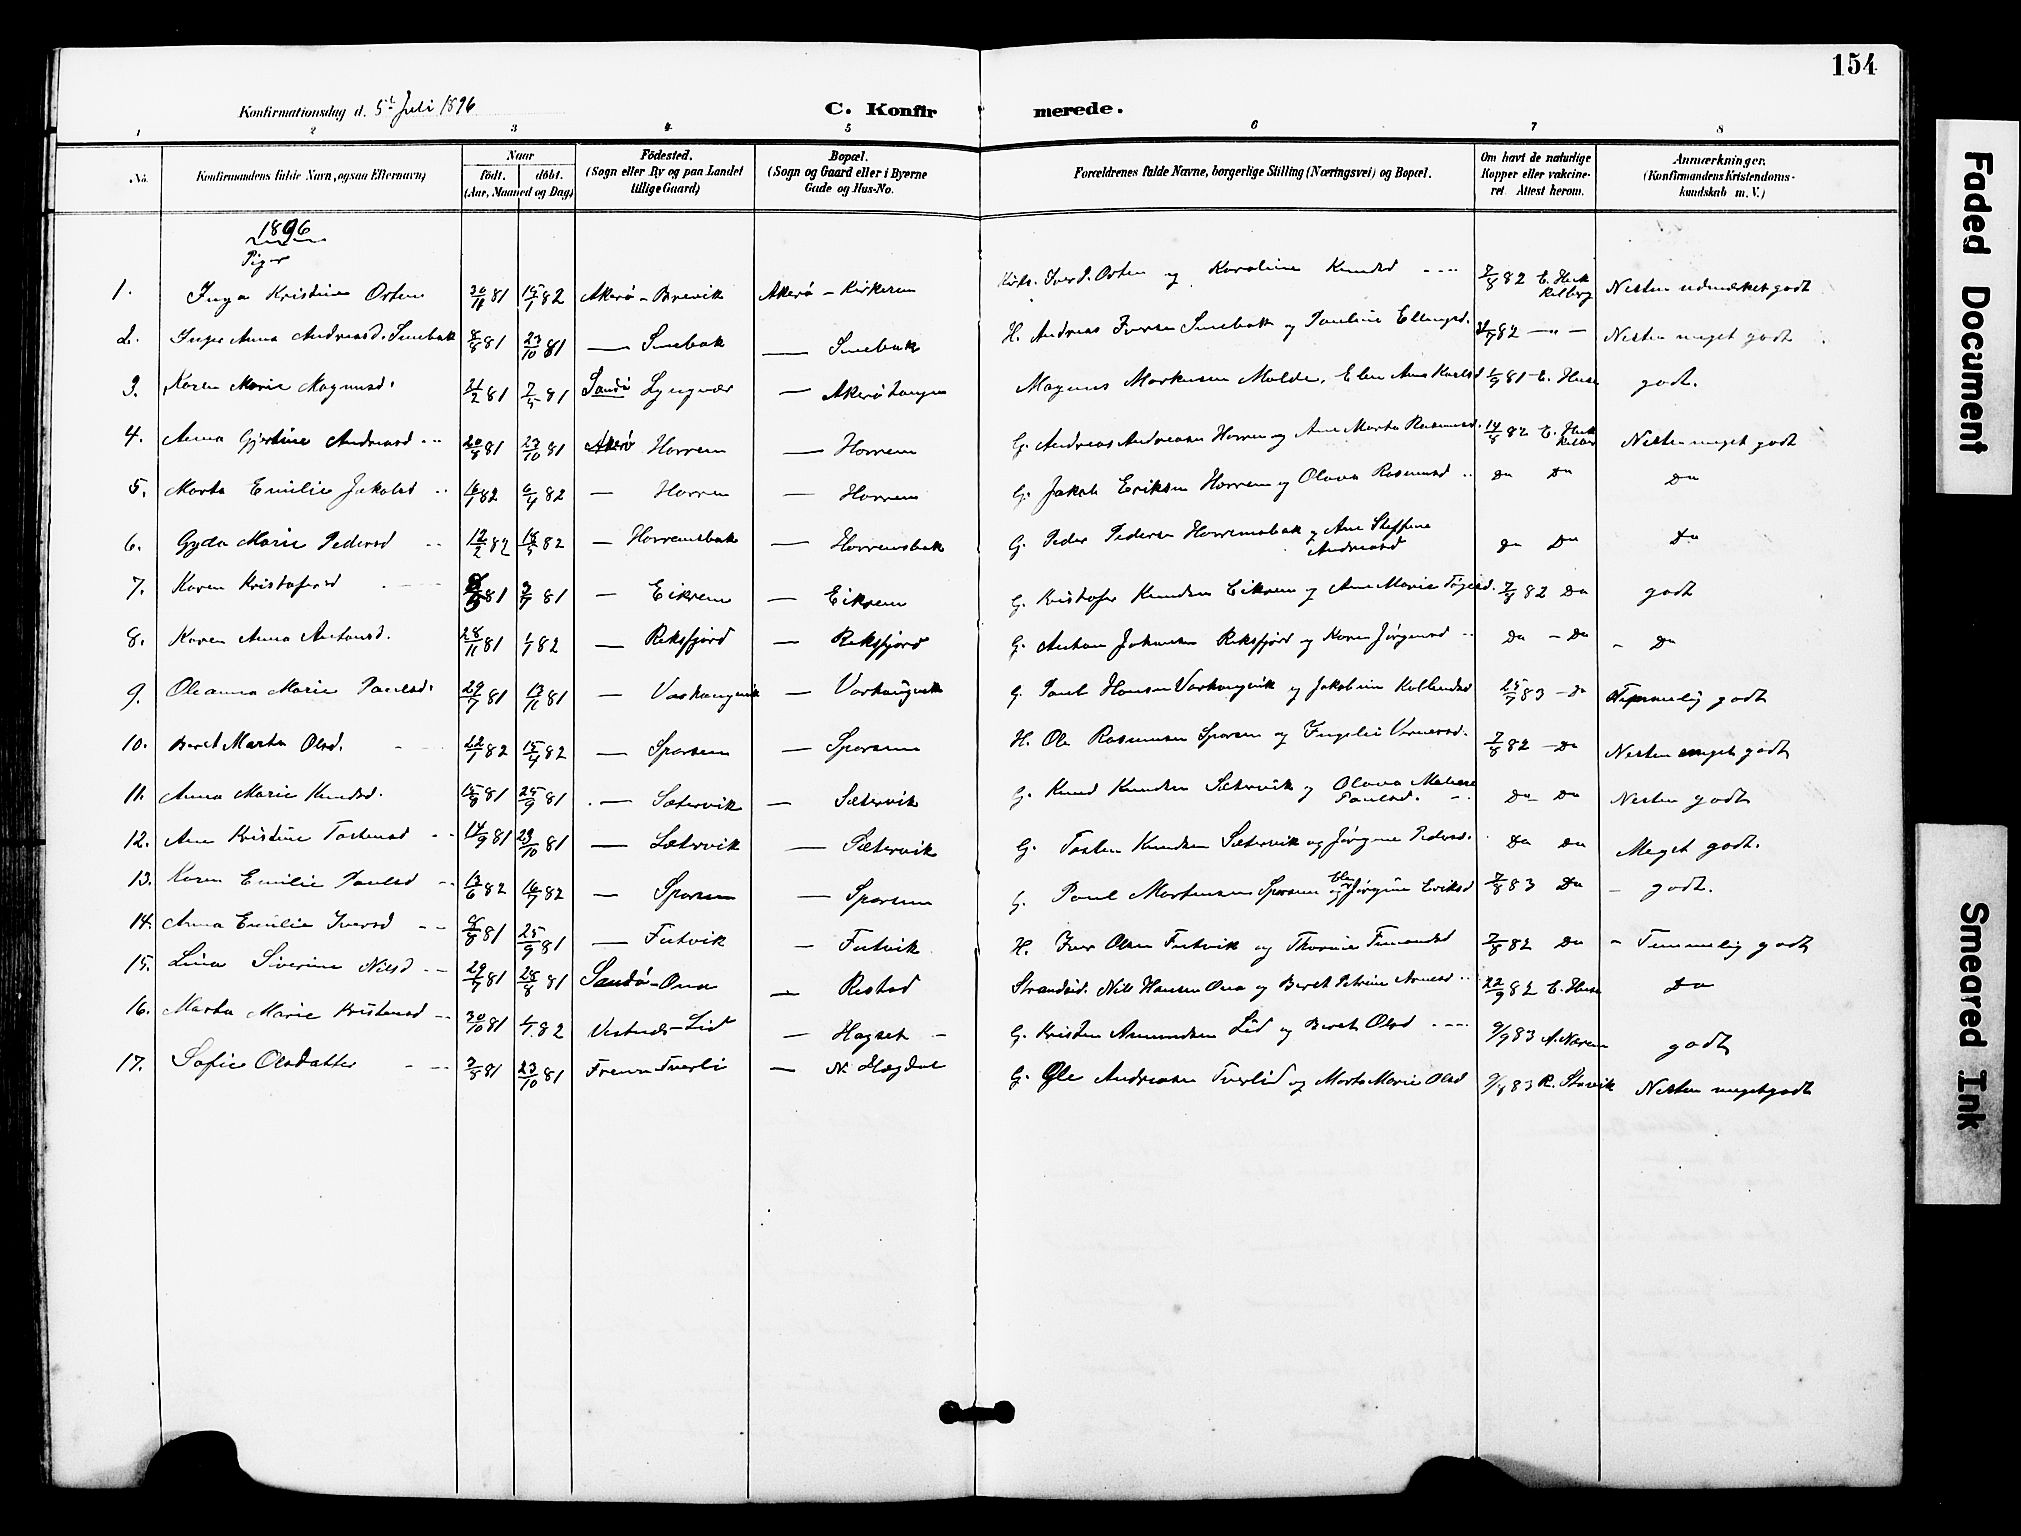 154
Konfirmationsdag d. 5te Juli 1896
C. Konfirmerede.
1 2 3 4 5 6 7 8
No. Konfirmandens fulde Navn, ogsaa Efternavn) Naar födt. döbt. (Aar, Maaned og Dag) Födested. (Sogn eller By og paa Landet tillige Gaard) Bopæl. (Sogn og Gaard eller i Byerne Gade og Hus-No. Forældrenes fulde Navne, borgerlige Stilling (Næringsvei) og Bopæl. Om havt de naturlige Kopper eller vakcineret. Attest herom. Anmærkninger. (Konfirmandens Kristendomskundskab m. V.)
1896
Piger
1. Inga Kristine Orten 30/11 81 15/1 82 Akerø - Brevik Akerø - Iver P. Orten og Karoline Knudsd 7/8 82 Nesten udmærket godt
2. Inger Anna Andreasd. Smebak 8/8 81 23/10 81 — Smebak — Smebak H. Andreas Iversen Smebak og Pauline Ellingsd. 82 — " — Nesten meget godt
3. Karen Marie Magnusd. 21/2 81 7/5 81 Sandø Lyngvær — Akerøtangen Magnus Markussen Molde, Elen Ana Karlsd 1/9 81 E. Huse godt.
4. Anna Gjertine Andreasd 20/8 81 23/10 81 Akerø Horrem — Horrem G. Andreas Andreasen Horrem og Ane Marta Rasmusd. 14/8 82 Nesten meget godt
5. Marta Emilie Jakobsd 16/1 82 6/4 82 — Horrem — Horrem G. Jakob Eriksen Horrem og Olava Rasmusd Do Do Do
6. Gyda Marie Pedersd 12/2 82 18/5 82 — Horremsbak — Horremsbak G. Peder Pedersen Horremsbak og Ane Steffine Andreasd do Do Do
7. Karen Kristofersd 81 3/7 81 — Eikrem — Eikrem G. Kristofer Knudsen Eikrem og Ane Marie 7/8 82 Do godt
8. Karen Anna Antonsd. 28/11 81 1/1 82 — Reksfjord — Reksfjord G. Anton Johansen Reksfjord og Karen Jørgensd Do - Do - Do
9. Oleanna Marie Paulsd. 29/7 81 13/11 81 — Varhaugvik — Varhaugvik G. Paul Hansen Varhaugvik og Jakobine 25/7 83 - do Temmelig godt
10. Beret Marta Olsd. 22/1 82 15/4 82 — Sporsem — Sporsem H. Ole Rasmussen Sporsem og Ingeli 7/8 82 - Do Nesten meget godt
11. Anna Marie Knudsd. 15/8 81 25/9 81 — Sætervik — Sætervik G. Knud Knudsen Sætervik og Olava Paulsd. Do - Do Nesten godt
12. Ane Kristine Tostensd 14/9 81 23/10 81 — Sætervik — Sætervik G. Tosten Knudsen Sætervik og Jørgine Pedersd. Do Do Meget godt.
13. Karen Emilie Paulsd 13/6 82 16/7 82 — Sporsem — Sporsem G. Paul Mortensen Sporsem og Jørgine Eriksd 7/8 83 Do - godt.
14. Anna Emilie Iversd 8/8 81 25/9 81 — Futvik — Futvik H. Iver Olsen Futvik og 7/8 82 Do - Temmelig godt
15. Lina Siverine Nilsd 29/7 81 28/8 81 Sandø - Ona — Restad Strandsid. Nils Hansen Ona og Beret Petrine Arnesd 22/9 82 E. Huse Do
16. Marta Marie Kristensd 30/10 81 1/1 82 Vestnes - Lid — Hagset - G. Kristen Amundsen Lid og Beret Olsd 9/9 83 godt
17. Sofie Olsdatter 3/8 81 23/10 81 Fræna Tverli — N. Hægdal G. Ole Andreasen Tverlid og Marta Marie Olsd 83 R. Stavik Nesten meget godt
Faded Document
Smeared Ink